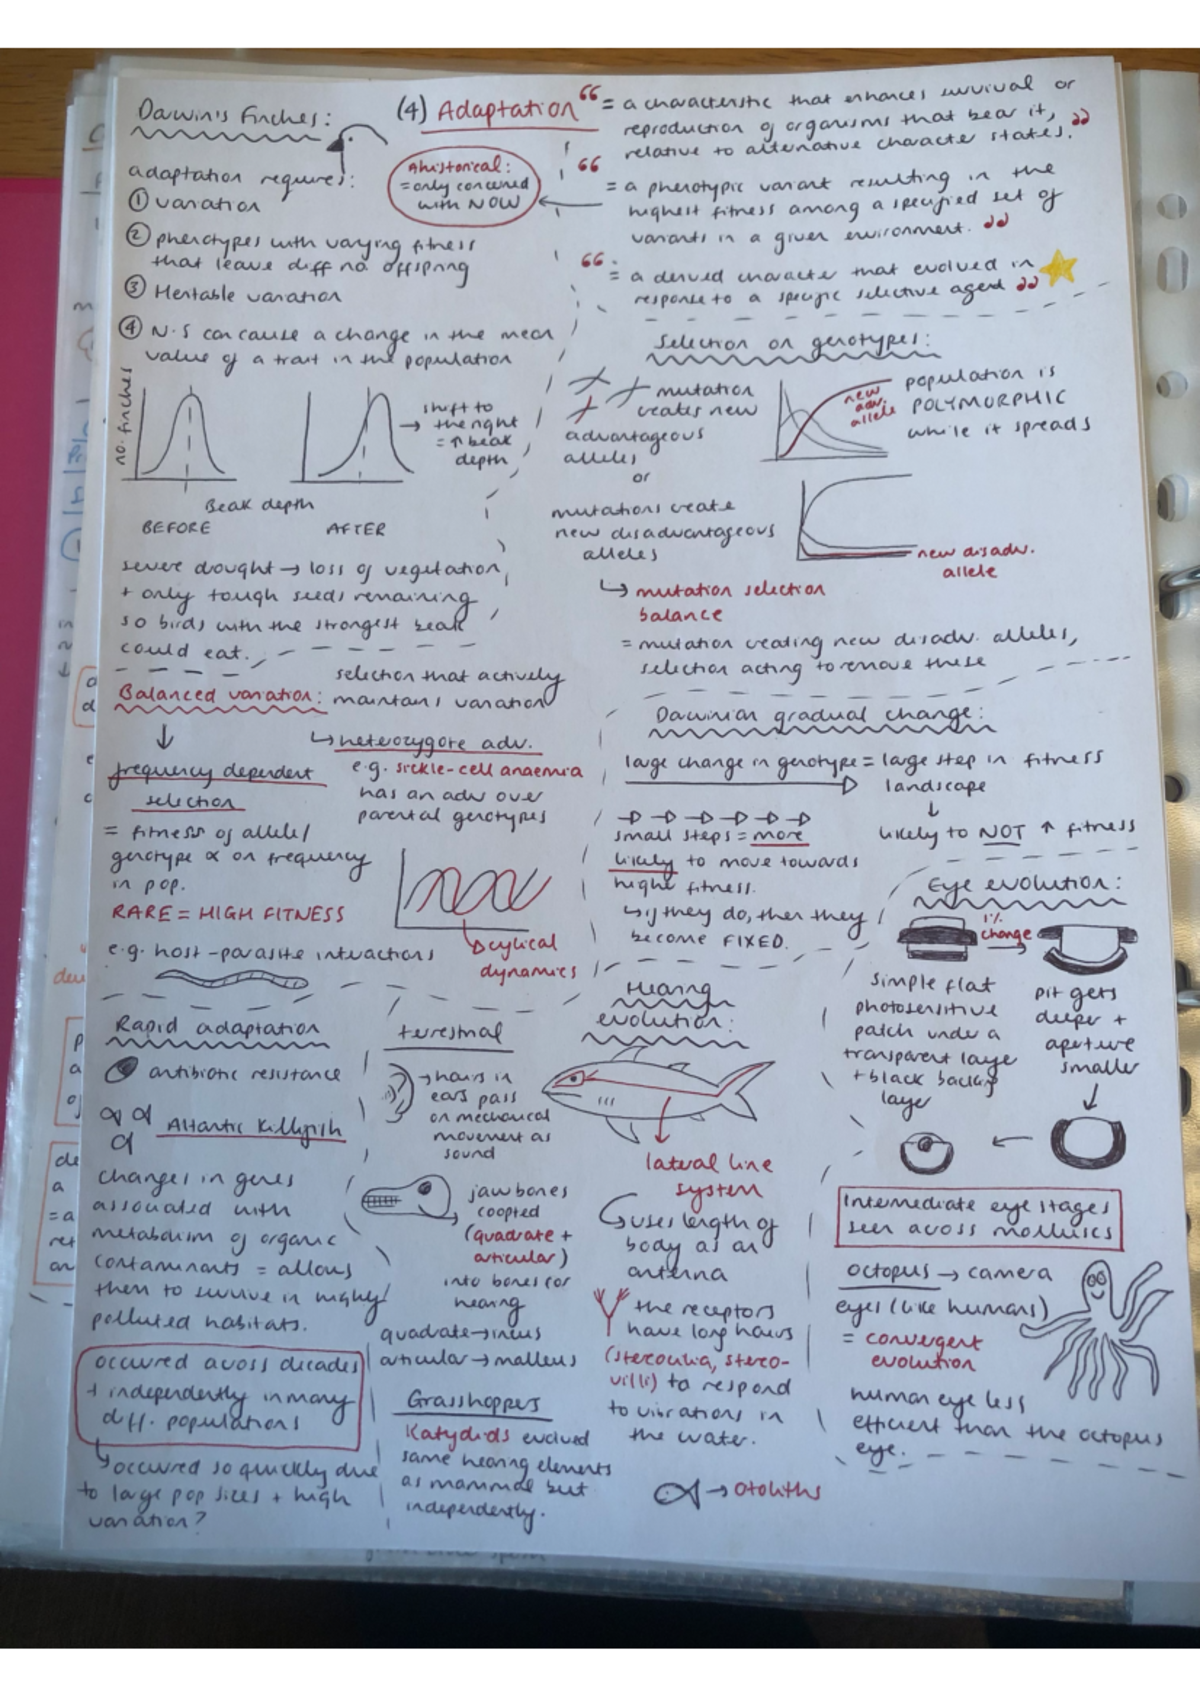 (4) Adaptation
" = a characteristic that enhances survival or
reproduction of organisms that bear it,
relative to alternative character states. "
" = a phenotypic variant resulting in the
highest fitness among a specified set of
variants in a given environment. "
Ahistorical:
= only concerned
with NOW
" = a derived character that evolved in
response to a specific selective agent "
Darwin's Finches:
adaptation requires:
① variation
② phenotypes with varying fitness
that leave diff no. offspring
③ Heritable variation
④ N.S can cause a change in the mean
value of a trait in the population
no. finches
→ shift to
the right
= ↑ beak
depth
Beak depth
BEFORE
AFTER
severe dought → loss of vegetation
+ only tough seeds remaining
so birds with the strongest beak
could eat.
Selection on genotypes:
mutation
creates new
advantageous
alleles
new
adv.
allele
population is
POLYMORPHIC
while it spreads
or
mutations create
new disadvantageous
alleles
new disadv.
allele
↳ mutation selection
balance
= mutation creating new disadv. alleles,
selection acting to remove these
Balanced variation: selection that actively
maintains variation
↓
↳ heterozygote adv.
e.g. sickle-cell anaemia
has an adv over
parental genotypes
frequency dependent
selection
= fitness of allele/
genotype ∝ on frequency
in pop.
RARE = HIGH FITNESS
cylical
dynamics
e.g. host-parasite interactions
Darwinian gradual change:
large change in genotype = large step in fitness
landscape
↓
likely to NOT ↑ fitness
small steps = more
likely to move towards
higher fitness.
↳ if they do, then they
become FIXED.
Eye evolution:
1%
change
simple flat
photosensitive
patch under a
transparent layer
+ black backing
layer
pit gets
deeper +
aperture
smaller
↓
←
Intermediate eye stages
seen across molluscs
octopus → camera
eyes (like humans)
= convergent
evolution
human eye less
efficient than the octopus
eye.
Rapid adaptation
antibiotic resistance
Atlantic Killifish
changes in genes
associated with
metabolism of organic
contaminants = allows
them to survive in highly
polluted habitats.
occured across decades
+ independently in many
diff. populations
↳ occured so quickly due
to large pop sizes + high
variation?
Hearing
evolution:
terrestrial
→ hairs in
ears pass
on mechanical
movement as
sound
jaw bones
coopted
(quadrate +
articular)
into bones for
hearing
quadrate → incus
articular → malleus
Grasshoppers
Katydids evolved
same hearing elements
as mammal but
independently.
lateral line
system
↳ uses length of
body as an
antenna
the receptors
have long hairs
(sterocilia, stereo-
villi) to respond
to vibrations in
the water.
→ otoliths